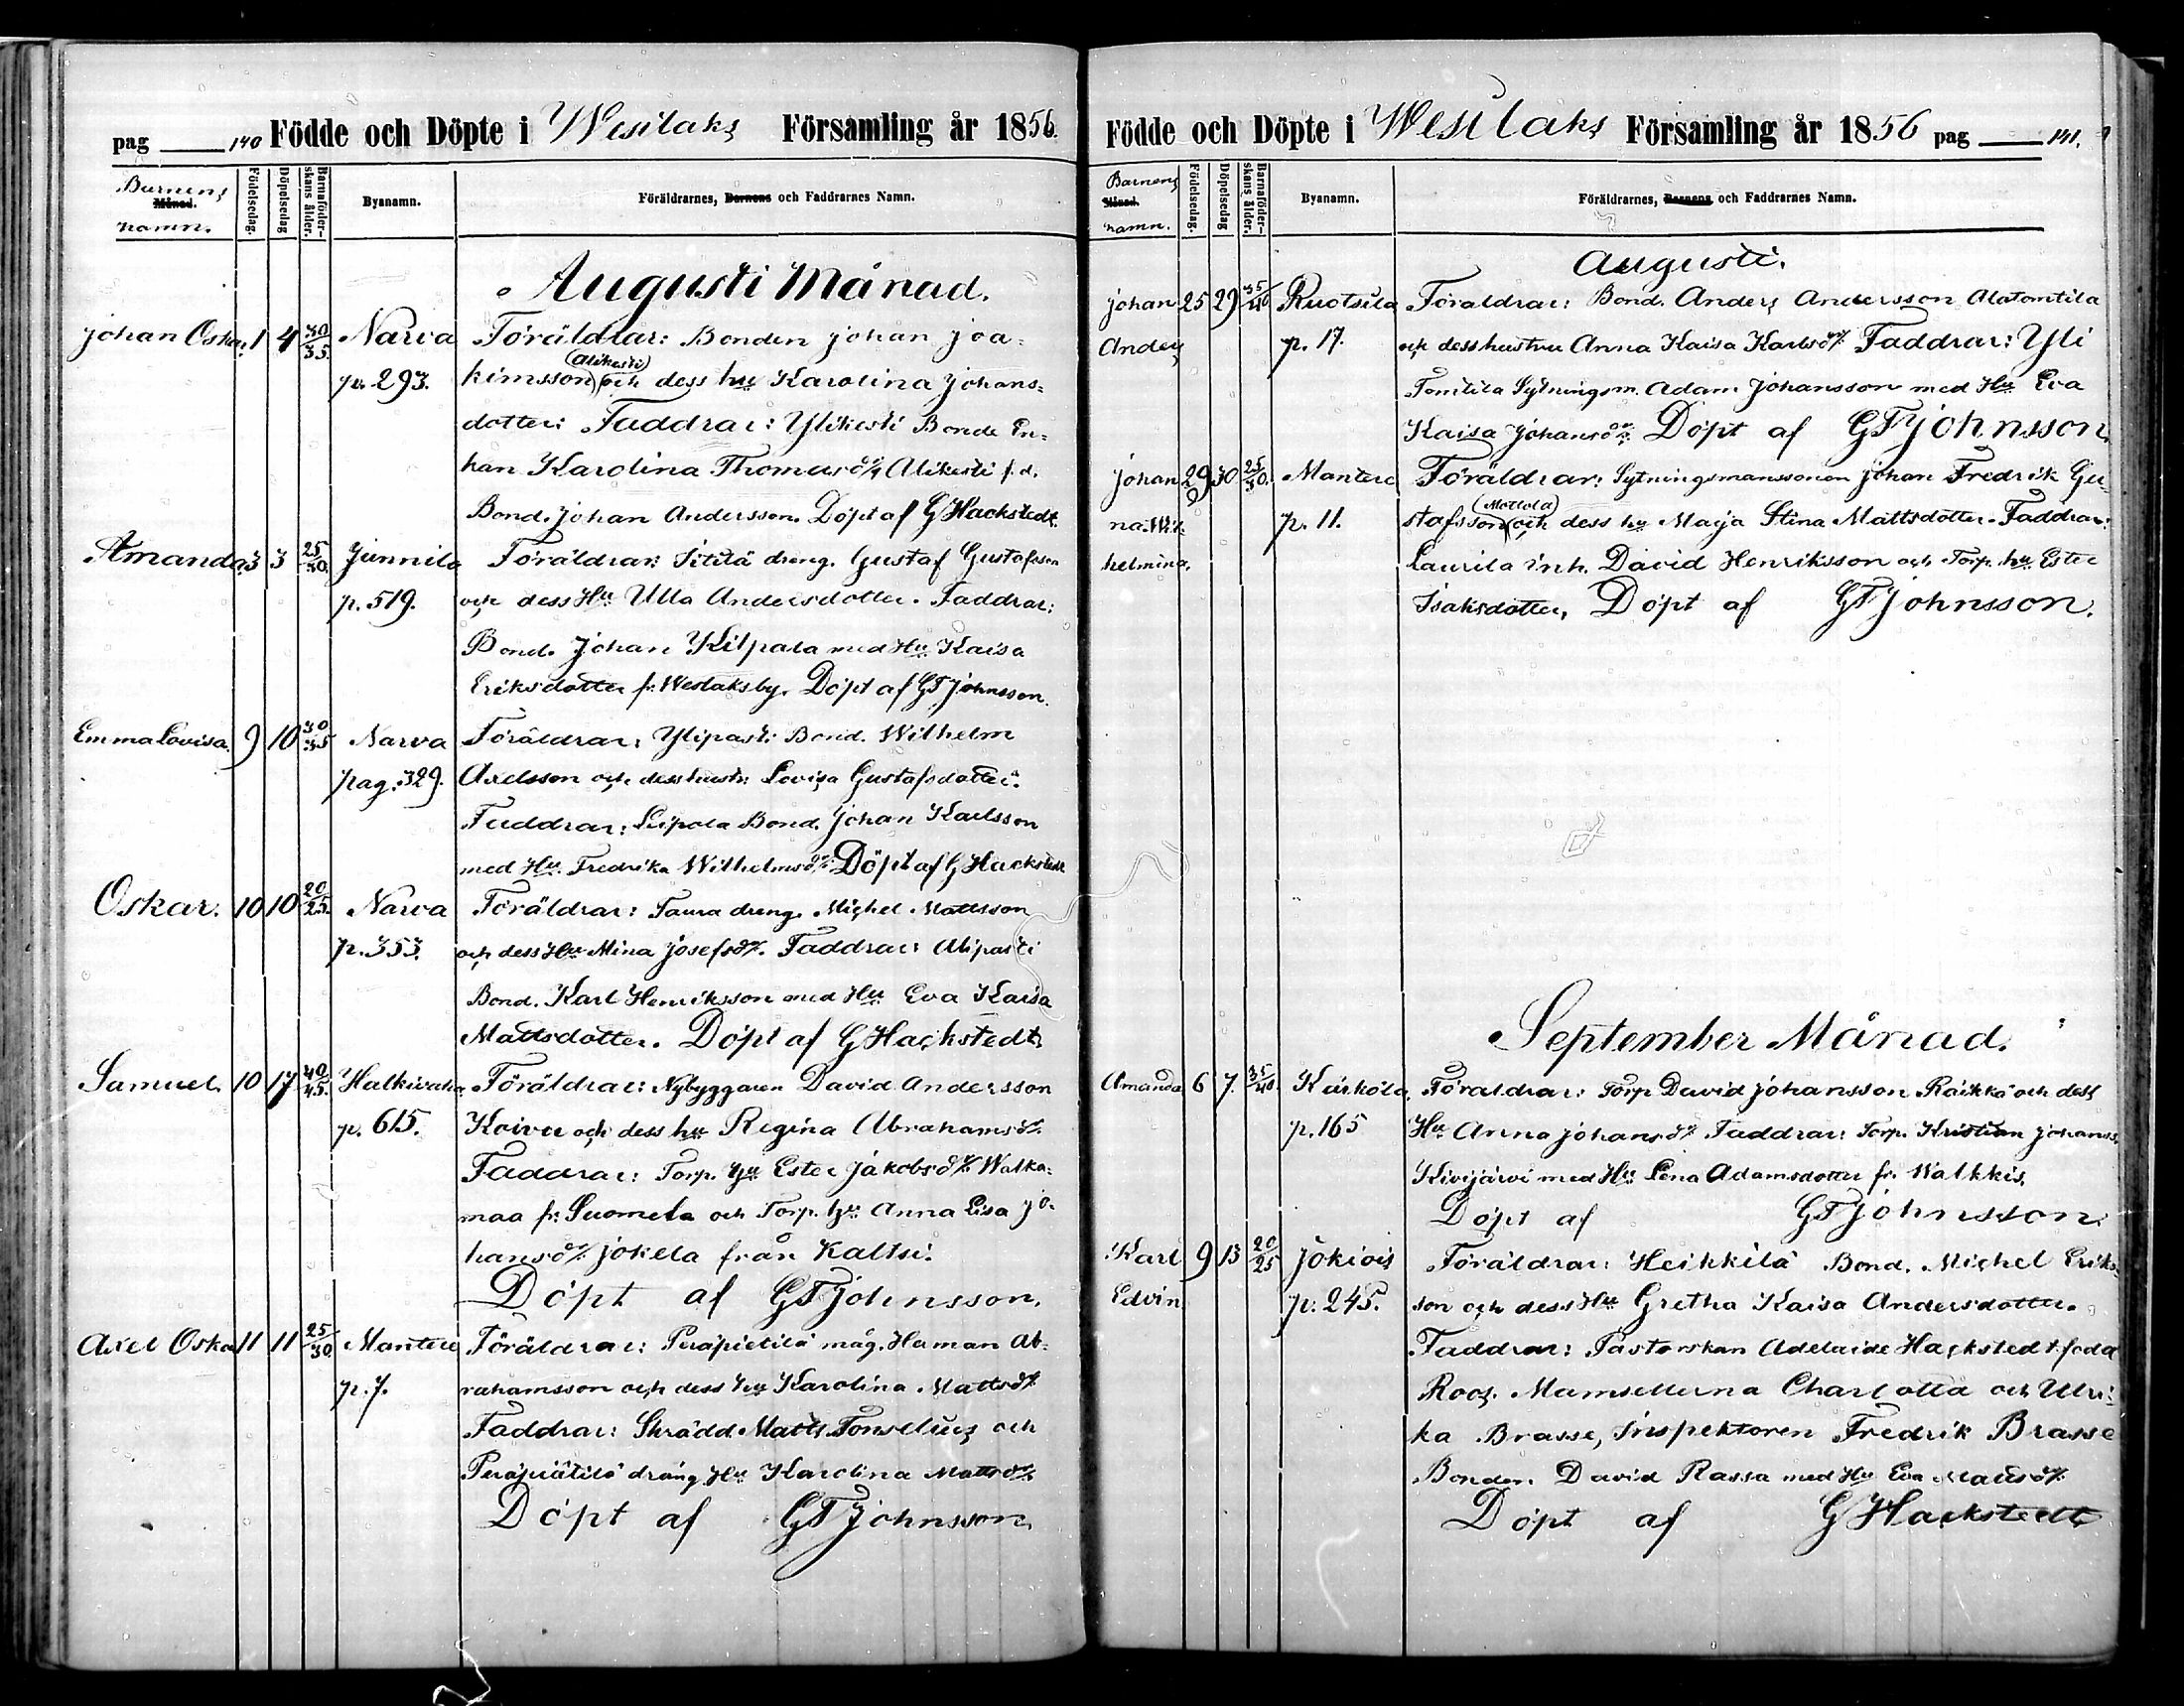 pag 140 Födde och Döpte i Wesilaks Församling år 1856.
Barnens namn. Månad. Födelsedag. Döpelsedag Barnaföderskans ålder. Byanamn. Föräldrarnes, Barnens och Faddrarnes Namn.
Augusti Månad.
Johan Oskar 1 4 30/35 Narva Föräldrar: Bonden Johan Joa-
p. 293. kimsson (Alikesti) och dess hu Karolina Johans-
dotter: Faddrar: Ylikesti Bonde En-
kan Karolina Thomasdr, Alikesti f.d.
Bond. Johan Andersson. Döpt af G Hackstedt.
Amanda 3 3 25/30. Junnila Föräldrar: Pitilä dreng. Gustaf Gustafsson
p. 519. och dess Hu Ulla Andersdotter. Faddrar:
Bond. Johan Kilpala med Hu Kaisa
Eriksdotter fr. Weslaksby. Döpt af GF Johnsson.
Emma Lovisa. 9 10 30/35 Narva Föräldrar: Ylipasti Bond. Wilhelm
pag. 329. Axelsson och dess hustr. Lovisa Gustafsdotter.
Faddrar: Leipola Bond. Johan Karlsson
med Hu. Fredrika Wilhelmsdr. Döpt af G Hackstedt
Oskar. 10 10 20/25. Narva Föräldrar: Taura dreng. Michel Mattsson
p. 353. och dess Hu Mina Josefsdr. Faddrar: Alipasti
Bond. Karl Henriksson med Hu Eva Kaisa
Mattsdotter. Döpt af G Hackstedt.
Samuel. 10 17 40/45. Halkivaha Föräldrar: Nybyggaren David Andersson
p. 615. Koivu och dess hu Regina Abrahamsdr.
Faddrar: Torp. hu Ester Jakobsdr. Walka-
maa fr. Suomela och Torp. hu Anna Lisa Jo-
hansdr. Jokela från Kaltsi.
Döpt af GF Johnsson.
Axel Oskar 11 11 25/30. Mantere Föräldrar: Peräpietilä måg. Haman Ab-
p. 7. rahamsson och dess hu Karolina Mattsdr.
Faddrar: Skrädd. Matts Tonselius och
Peräpiätilä dräng Hu Karolina Mattsdr.
Döpt af GF Johnsson.
Födde och Döpte i Wesilaks Församling år 1856 pag 141.
Barnens namn. Månad. Födelsedag. Döpelsedag Barnaföderskans ålder. Byanamn. Föräldrarnes, Barnens och Faddrarnes Namn.
Augusti.
Johan 25 29 35/40 Ruotsila Föräldrar: Bond. Anders Andersson Alatomtila
Anders p. 17. och dess hustru Anna Kaisa Karlsdr. Faddrar: Yli
Tomtila Sytningsm. Adam Johansson med Hu Eva
Kaisa Johansdr. Döpt af GF Johnsson.
Johan 29 30 25/30. Mantere Föräldrar: Sytningsmanssonen Johan Fredrik Gu-
na Wil- p. 11. stafsson (Mattola) och dess hu Maija Stina Mattsdotter. Faddrar:
helmina. Laurila inh. David Henriksson och Torp. hu Ester
Isaksdotter, Döpt af GF Johnsson.
September Månad.
Amanda 6 7. 35/40. Keisköla Föräldrar: Torp David Johansson Raikko och dess
p. 165 Hu Anna Johansdr. Faddrar: Torp. Kristian Johanss.
Kivijärvi med Hu Lena Adamsdotter fr. Walkkis.
Döpt af GF Johnsson.
Karl 9 13 20/25 Jokiois Föräldrar: Heikkilä Bond. Michel Eriks-
Edvin p. 245. son och dess Hu Gretha Kaisa Andersdotter.
Faddrar: Pastorskan Adelaide Hackstedt född
Roos. Mamsellerna Charlotta och Ulri-
ka Brasse, Inspektoren Fredrik Brasse
Bonden David Rassa med Hu Eva Mattsdr.
Döpt af G Hackstedt